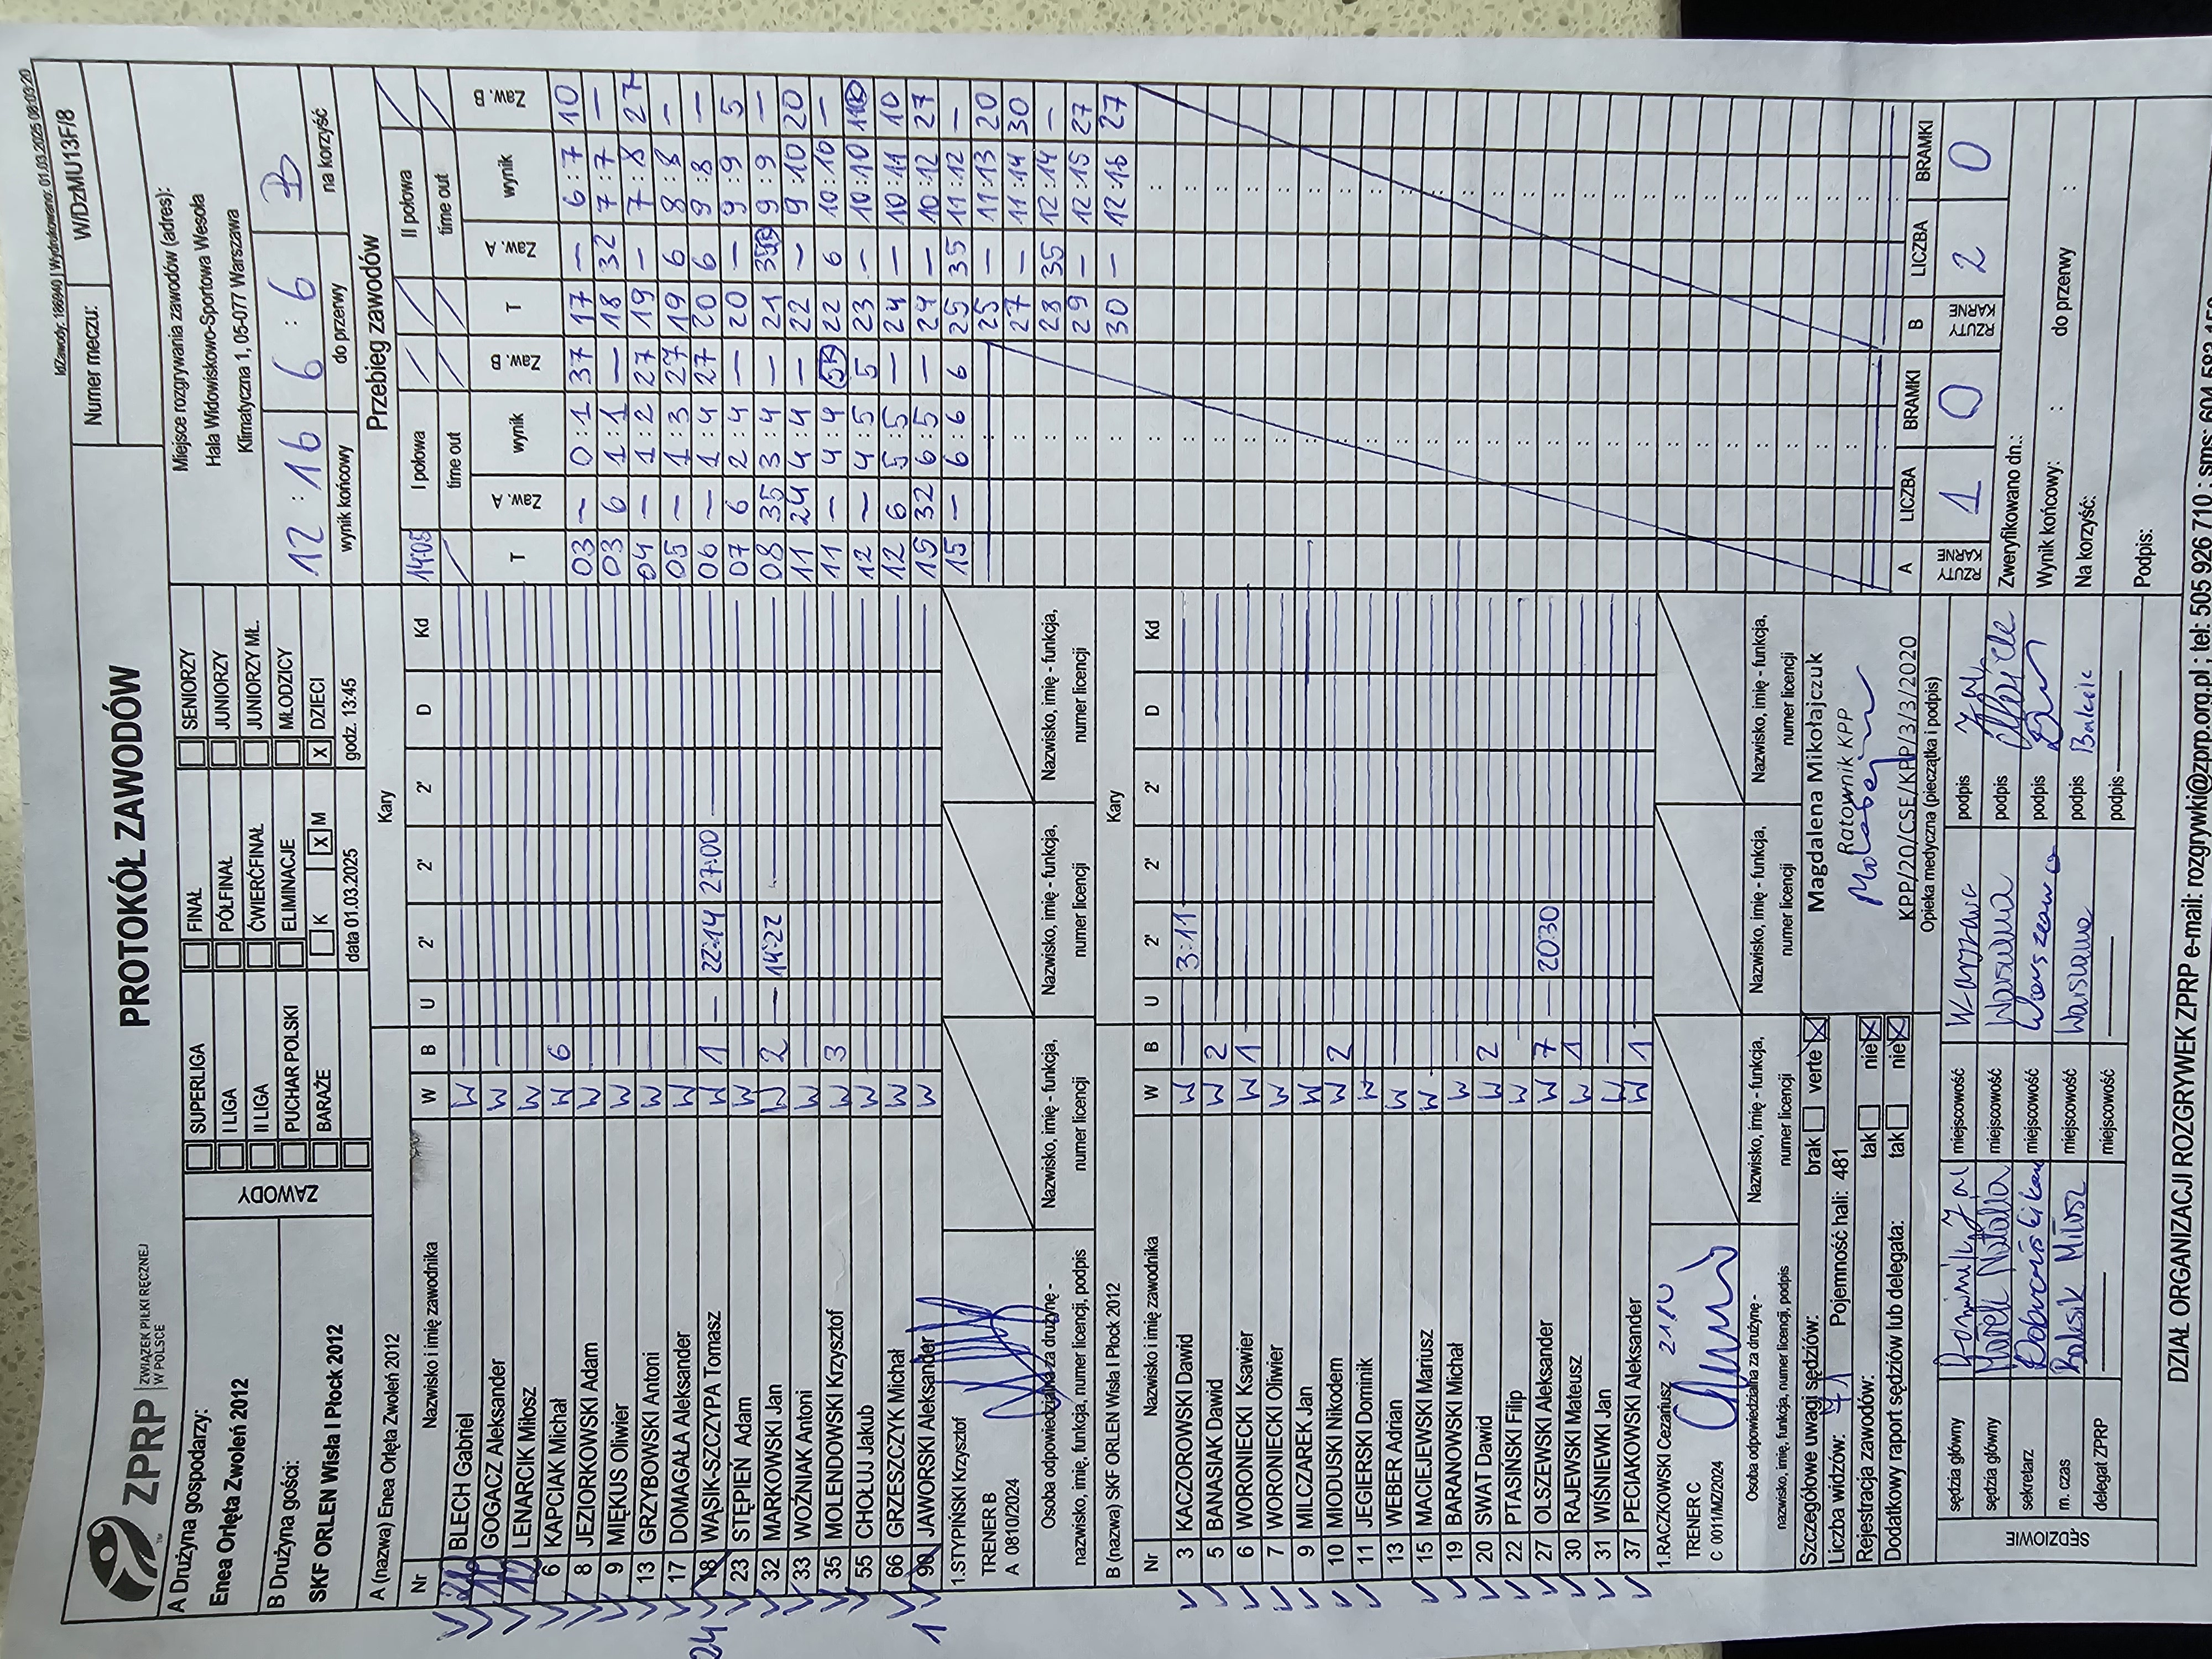 IdZawody: 186940 | Wydrukowano: 01.03.2025 08:03:20
ZPRP ZWIĄZEK PIŁKI RĘCZNEJ W POLSCE
PROTOKÓŁ ZAWODÓW
Numer meczu: W/DzMU13F/8
A Drużyna gospodarzy:
Enea Orlęta Zwoleń 2012
B Drużyna gości:
SKF ORLEN Wisła I Płock 2012
ZAWODY
SUPERLIGA FINAŁ SENIORZY
I LIGA PÓŁFINAŁ JUNIORZY
II LIGA ĆWIERĆFINAŁ JUNIORZY MŁ.
PUCHAR POLSKI ELIMINACJE MŁODZICY
BARAŻE K X M X DZIECI
data 01.03.2025 godz. 13:45
Miejsce rozgrywania zawodów (adres):
Hala Widowiskowo-Sportowa Wesoła
Klimatyczna 1, 05-077 Warszawa
12 : 16 6 : 6 B
wynik końcowy do przerwy na korzyść
A (nazwa) Enea Orlęta Zwoleń 2012 Kary
Nr Nazwisko i imię zawodnika W B U 2' 2' 2' D Kd
BLECH Gabriel W
GOGACZ Aleksander W
12 LENARCIK Miłosz W
6 KAPCIAK Michał W 6
8 JEZIORKOWSKI Adam W
9 MIĘKUS Oliwier W
13 GRZYBOWSKI Antoni W
17 DOMAGAŁA Aleksander W
24 18 WĄSIK-SZCZYPA Tomasz W 1 — 22:14 27:00
23 STĘPIEŃ Adam W
32 MARKOWSKI Jan W 2 — 14:22
33 WOŹNIAK Antoni W
35 MOLENDOWSKI Krzysztof W 3
55 CHOŁUJ Jakub W
66 GRZESZCZYK Michał W
1 90 JAWORSKI Aleksander W
1.STYPIŃSKI Krzysztof
TRENER B
A 0810/2024
Osoba odpowiedzialna za drużynę -
nazwisko, imię, funkcja, numer licencji, podpis
Nazwisko, imię - funkcja,
numer licencji
Nazwisko, imię - funkcja,
numer licencji
Nazwisko, imię - funkcja,
numer licencji
B (nazwa) SKF ORLEN Wisła I Płock 2012 Kary
Nr Nazwisko i imię zawodnika W B U 2' 2' 2' D Kd
3 KACZOROWSKI Dawid W 3:11
5 BANASIAK Dawid W 2
6 WORONIECKI Ksawier W 1
7 WORONIECKI Oliwier W
9 MILCZAREK Jan W
10 MIODUSKI Nikodem W 2
11 JEGIERSKI Dominik W
13 WEBER Adrian W
15 MACIEJEWSKI Mariusz W
19 BARANOWSKI Michał W
20 SWAT Dawid W 2
22 PTASIŃSKI Filip W
27 OLSZEWSKI Aleksander W 7 — 20:30
30 RAJEWSKI Mateusz W 1
31 WIŚNIEWKI Jan W
37 PECIAKOWSKI Aleksander W 1
1.RACZKOWSKI Cezariusz
TRENER C
C 0011/MZ/2024
Osoba odpowiedzialna za drużynę -
nazwisko, imię, funkcja, numer licencji, podpis
Nazwisko, imię - funkcja,
numer licencji
Nazwisko, imię - funkcja,
numer licencji
Nazwisko, imię - funkcja,
numer licencji
Szczegółowe uwagi sędziów: brak verte X
Liczba widzów: 71 Pojemność hali: 481
Rejestracja zawodów: tak nie X
Dodatkowy raport sędziów lub delegata: tak nie X
Magdalena Mikołajczuk
Ratownik KPP
KPP/20/CSE/KPP/3/3/2020
Opieka medyczna (pieczątka i podpis)
SĘDZIOWIE
sędzia główny Dominik miejscowość Warszawa podpis
sędzia główny Marek Natalia miejscowość Warszawa podpis
sekretarz miejscowość Warszawa podpis
m. czas Balcsik Miłosz miejscowość Warszawa podpis
delegat ZPRP miejscowość podpis
Przebieg zawodów
14:05 I połowa II połowa
time out time out
T Zaw. A wynik Zaw. B T Zaw. A wynik Zaw. B
03 — 0:1 37 17 — 6:7 10
03 6 1:1 — 18 32 7:7 —
04 — 1:2 27 19 — 7:8 27
05 — 1:3 27 19 6 8:8 —
06 — 1:4 27 20 6 9:8 —
07 6 2:4 — 20 — 9:9 5
08 35 3:4 — 21 35 9:9 —
11 24 4:4 — 22 — 9:10 20
11 — 4:4 5 22 6 10:10 —
12 — 4:5 5 23 — 10:10
12 6 5:5 — 24 — 10:11 10
15 32 6:5 — 24 — 10:12 27
15 — 6:6 6 25 35 11:12 —
25 — 11:13 20
27 — 11:14 30
28 35 12:14 —
29 — 12:15 27
30 — 12:16 27
A LICZBA BRAMKI B LICZBA BRAMKI
RZUTY KARNE 1 0 RZUTY KARNE 2 0
Zweryfikowano dn.:
Wynik końcowy: : do przerwy :
Na korzyść:
Podpis:
DZIAŁ ORGANIZACJI ROZGRYWEK ZPRP e-mail: rozgrywki@zprp.org.pl ; tel: 505 926 710 ; sms: 604